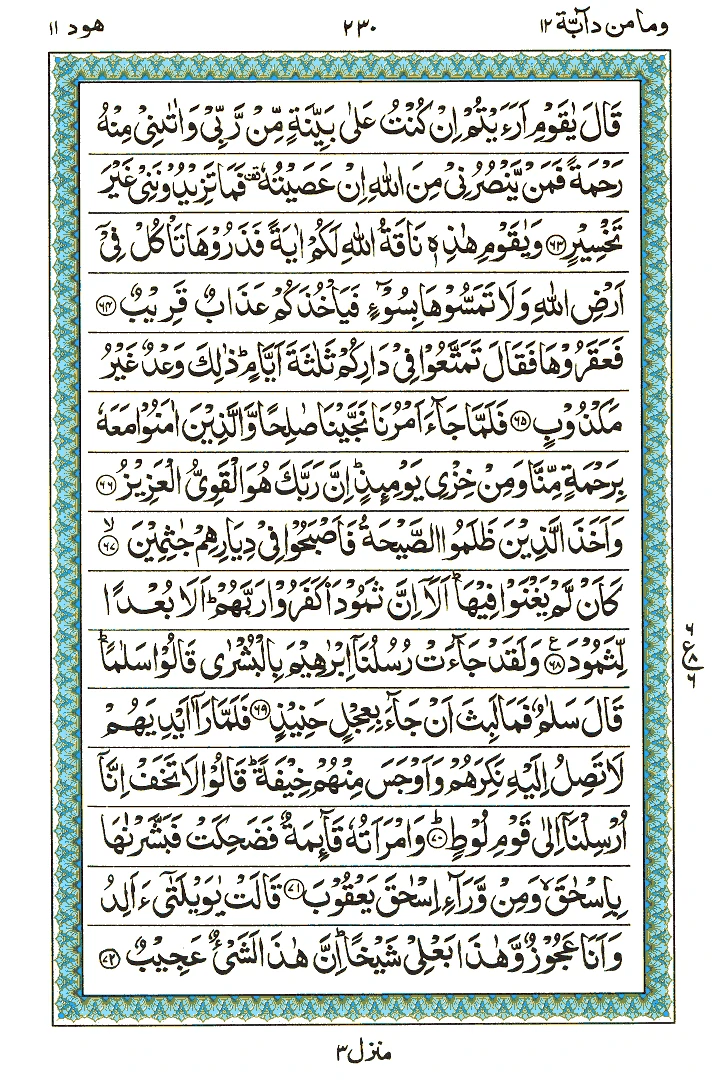 وما من دآبة ١٢ ٢٣٠ هود ١١
قَالَ يٰقَوْمِ اَرَءَيْتُمْ اِنْ كُنْتُ عَلٰى بَيِّنَةٍ مِّنْ رَّبِّيْ وَاٰتٰىنِيْ مِنْهُ
رَحْمَةً فَمَنْ يَّنْصُرُنِيْ مِنَ اللّٰهِ اِنْ عَصَيْتُهٗ ۫ فَمَا تَزِيْدُوْنَنِيْ غَيْرَ
تَخْسِيْرٍ ﴿۶۳﴾ وَيٰقَوْمِ هٰذِهٖ نَاقَةُ اللّٰهِ لَكُمْ اٰيَةً فَذَرُوْهَا تَاْكُلْ فِيْۤ
اَرْضِ اللّٰهِ وَلَا تَمَسُّوْهَا بِسُوْٓءٍ فَيَاْخُذَكُمْ عَذَابٌ قَرِيْبٌ ﴿۶۴﴾
فَعَقَرُوْهَا فَقَالَ تَمَتَّعُوْا فِيْ دَارِكُمْ ثَلٰثَةَ اَيَّامٍ ؕ ذٰلِكَ وَعْدٌ غَيْرُ
مَكْذُوْبٍ ﴿۶۵﴾ فَلَمَّا جَآءَ اَمْرُنَا نَجَّيْنَا صٰلِحًا وَّالَّذِيْنَ اٰمَنُوْا مَعَهٗ
بِرَحْمَةٍ مِّنَّا وَمِنْ خِزْيِ يَوْمِئِذٍ ؕ اِنَّ رَبَّكَ هُوَ الْقَوِيُّ الْعَزِيْزُ ﴿۶۶﴾
وَاَخَذَ الَّذِيْنَ ظَلَمُوا الصَّيْحَةُ فَاَصْبَحُوْا فِيْ دِيَارِهِمْ جٰثِمِيْنَ ۙ﴿۶۷﴾
كَاَنْ لَّمْ يَغْنَوْا فِيْهَا ؕ اَلَاۤ اِنَّ ثَمُوْدَا۠ كَفَرُوْا رَبَّهُمْ ؕ اَلَا بُعْدًا
لِّثَمُوْدَ ﴿۶۸﴾ ع وَلَقَدْ جَآءَتْ رُسُلُنَاۤ اِبْرٰهِيْمَ بِالْبُشْرٰى قَالُوْا سَلٰمًا ؕ
۶ ع ۸ ۶
قَالَ سَلٰمٌ فَمَا لَبِثَ اَنْ جَآءَ بِعِجْلٍ حَنِيْذٍ ﴿۶۹﴾ فَلَمَّا رَاٰۤ اَيْدِيَهُمْ
لَا تَصِلُ اِلَيْهِ نَكِرَهُمْ وَاَوْجَسَ مِنْهُمْ خِيْفَةً ؕ قَالُوْا لَا تَخَفْ اِنَّاۤ
اُرْسِلْنَاۤ اِلٰى قَوْمِ لُوْطٍ ؕ﴿۷۰﴾ وَامْرَاَتُهٗ قَآئِمَةٌ فَضَحِكَتْ فَبَشَّرْنٰهَا
بِاِسْحٰقَ ۙ وَمِنْ وَّرَآءِ اِسْحٰقَ يَعْقُوْبَ ﴿۷۱﴾ قَالَتْ يٰوَيْلَتٰٓى ءَاَلِدُ
وَاَنَا عَجُوْزٌ وَّهٰذَا بَعْلِيْ شَيْخًا ؕ اِنَّ هٰذَا لَشَيْءٌ عَجِيْبٌ ﴿۷۲﴾
منزل ۳